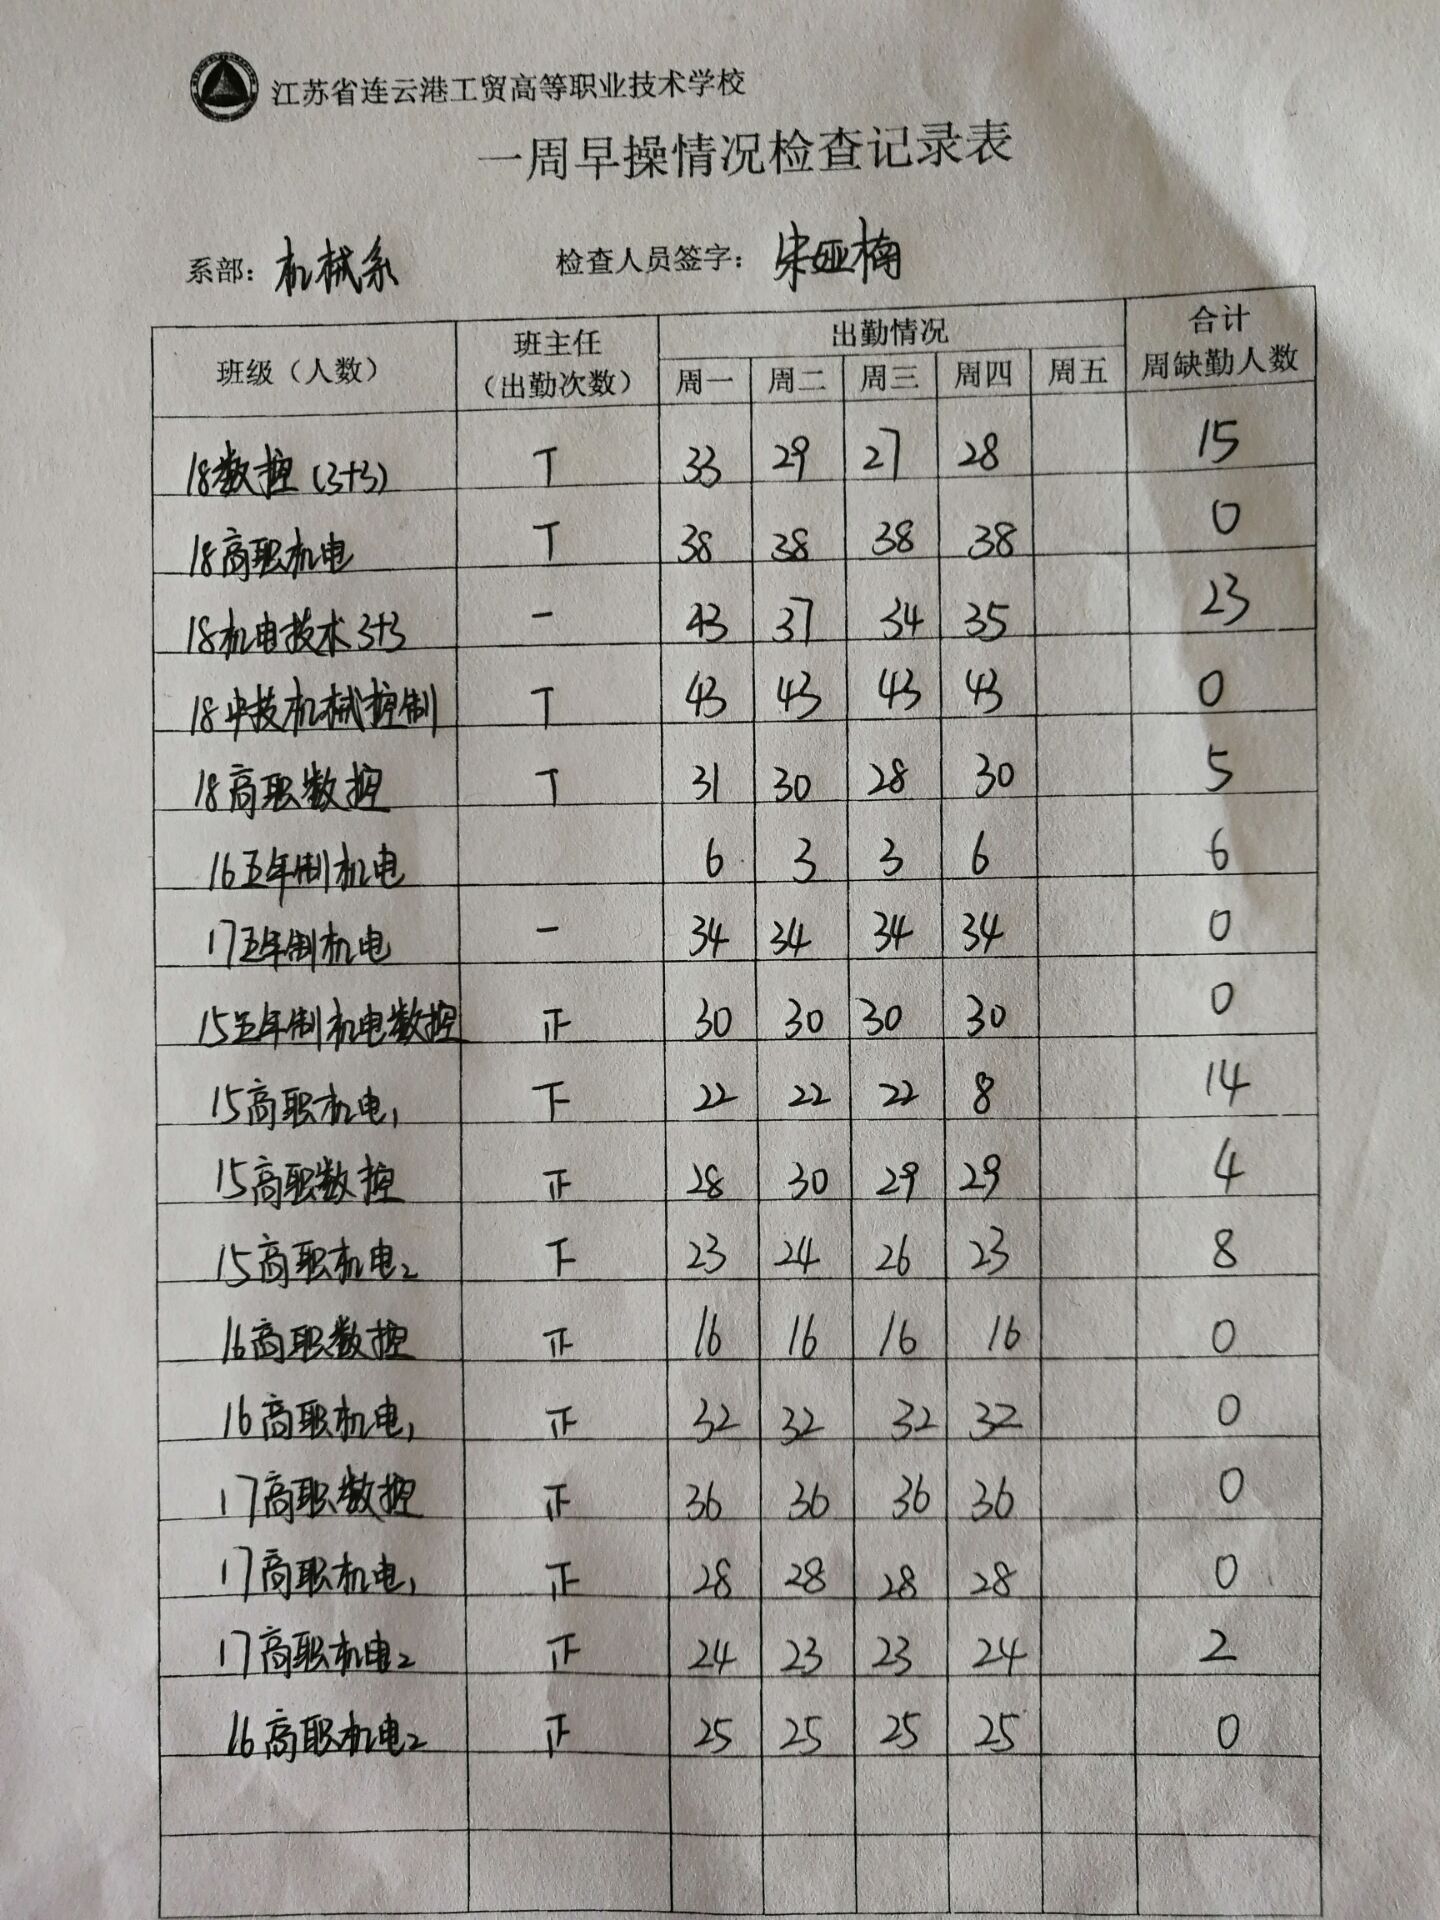 江苏省连云港工贸高等职业技术学校
一周早操情况检查记录表
系部: 机械系 检查人员签字: 宋娅楠
班级（人数） 班主任（出勤次数） 出勤情况 合计周缺勤人数
周一 周二 周三 周四 周五
18数控(3+3) T 33 29 27 28 15
18高职机电 T 38 38 38 38 0
18机电技术3+3 一 43 37 34 35 23
18中技机械控制 T 43 43 43 43 0
18高职数控 T 31 30 28 30 5
16五年制机电 6 3 3 6 6
17五年制机电 一 34 34 34 34 0
15五年制机电数控 正 30 30 30 30 0
15高职机电1 下 22 22 22 8 14
15高职数控 正 28 30 29 29 4
15高职机电2 下 23 24 26 23 8
16高职数控 正 16 16 16 16 0
16高职机电1 正 32 32 32 32 0
17高职数控 正 36 36 36 36 0
17高职机电1 正 28 28 28 28 0
17高职机电2 正 24 23 23 24 2
16高职机电2 正 25 25 25 25 0